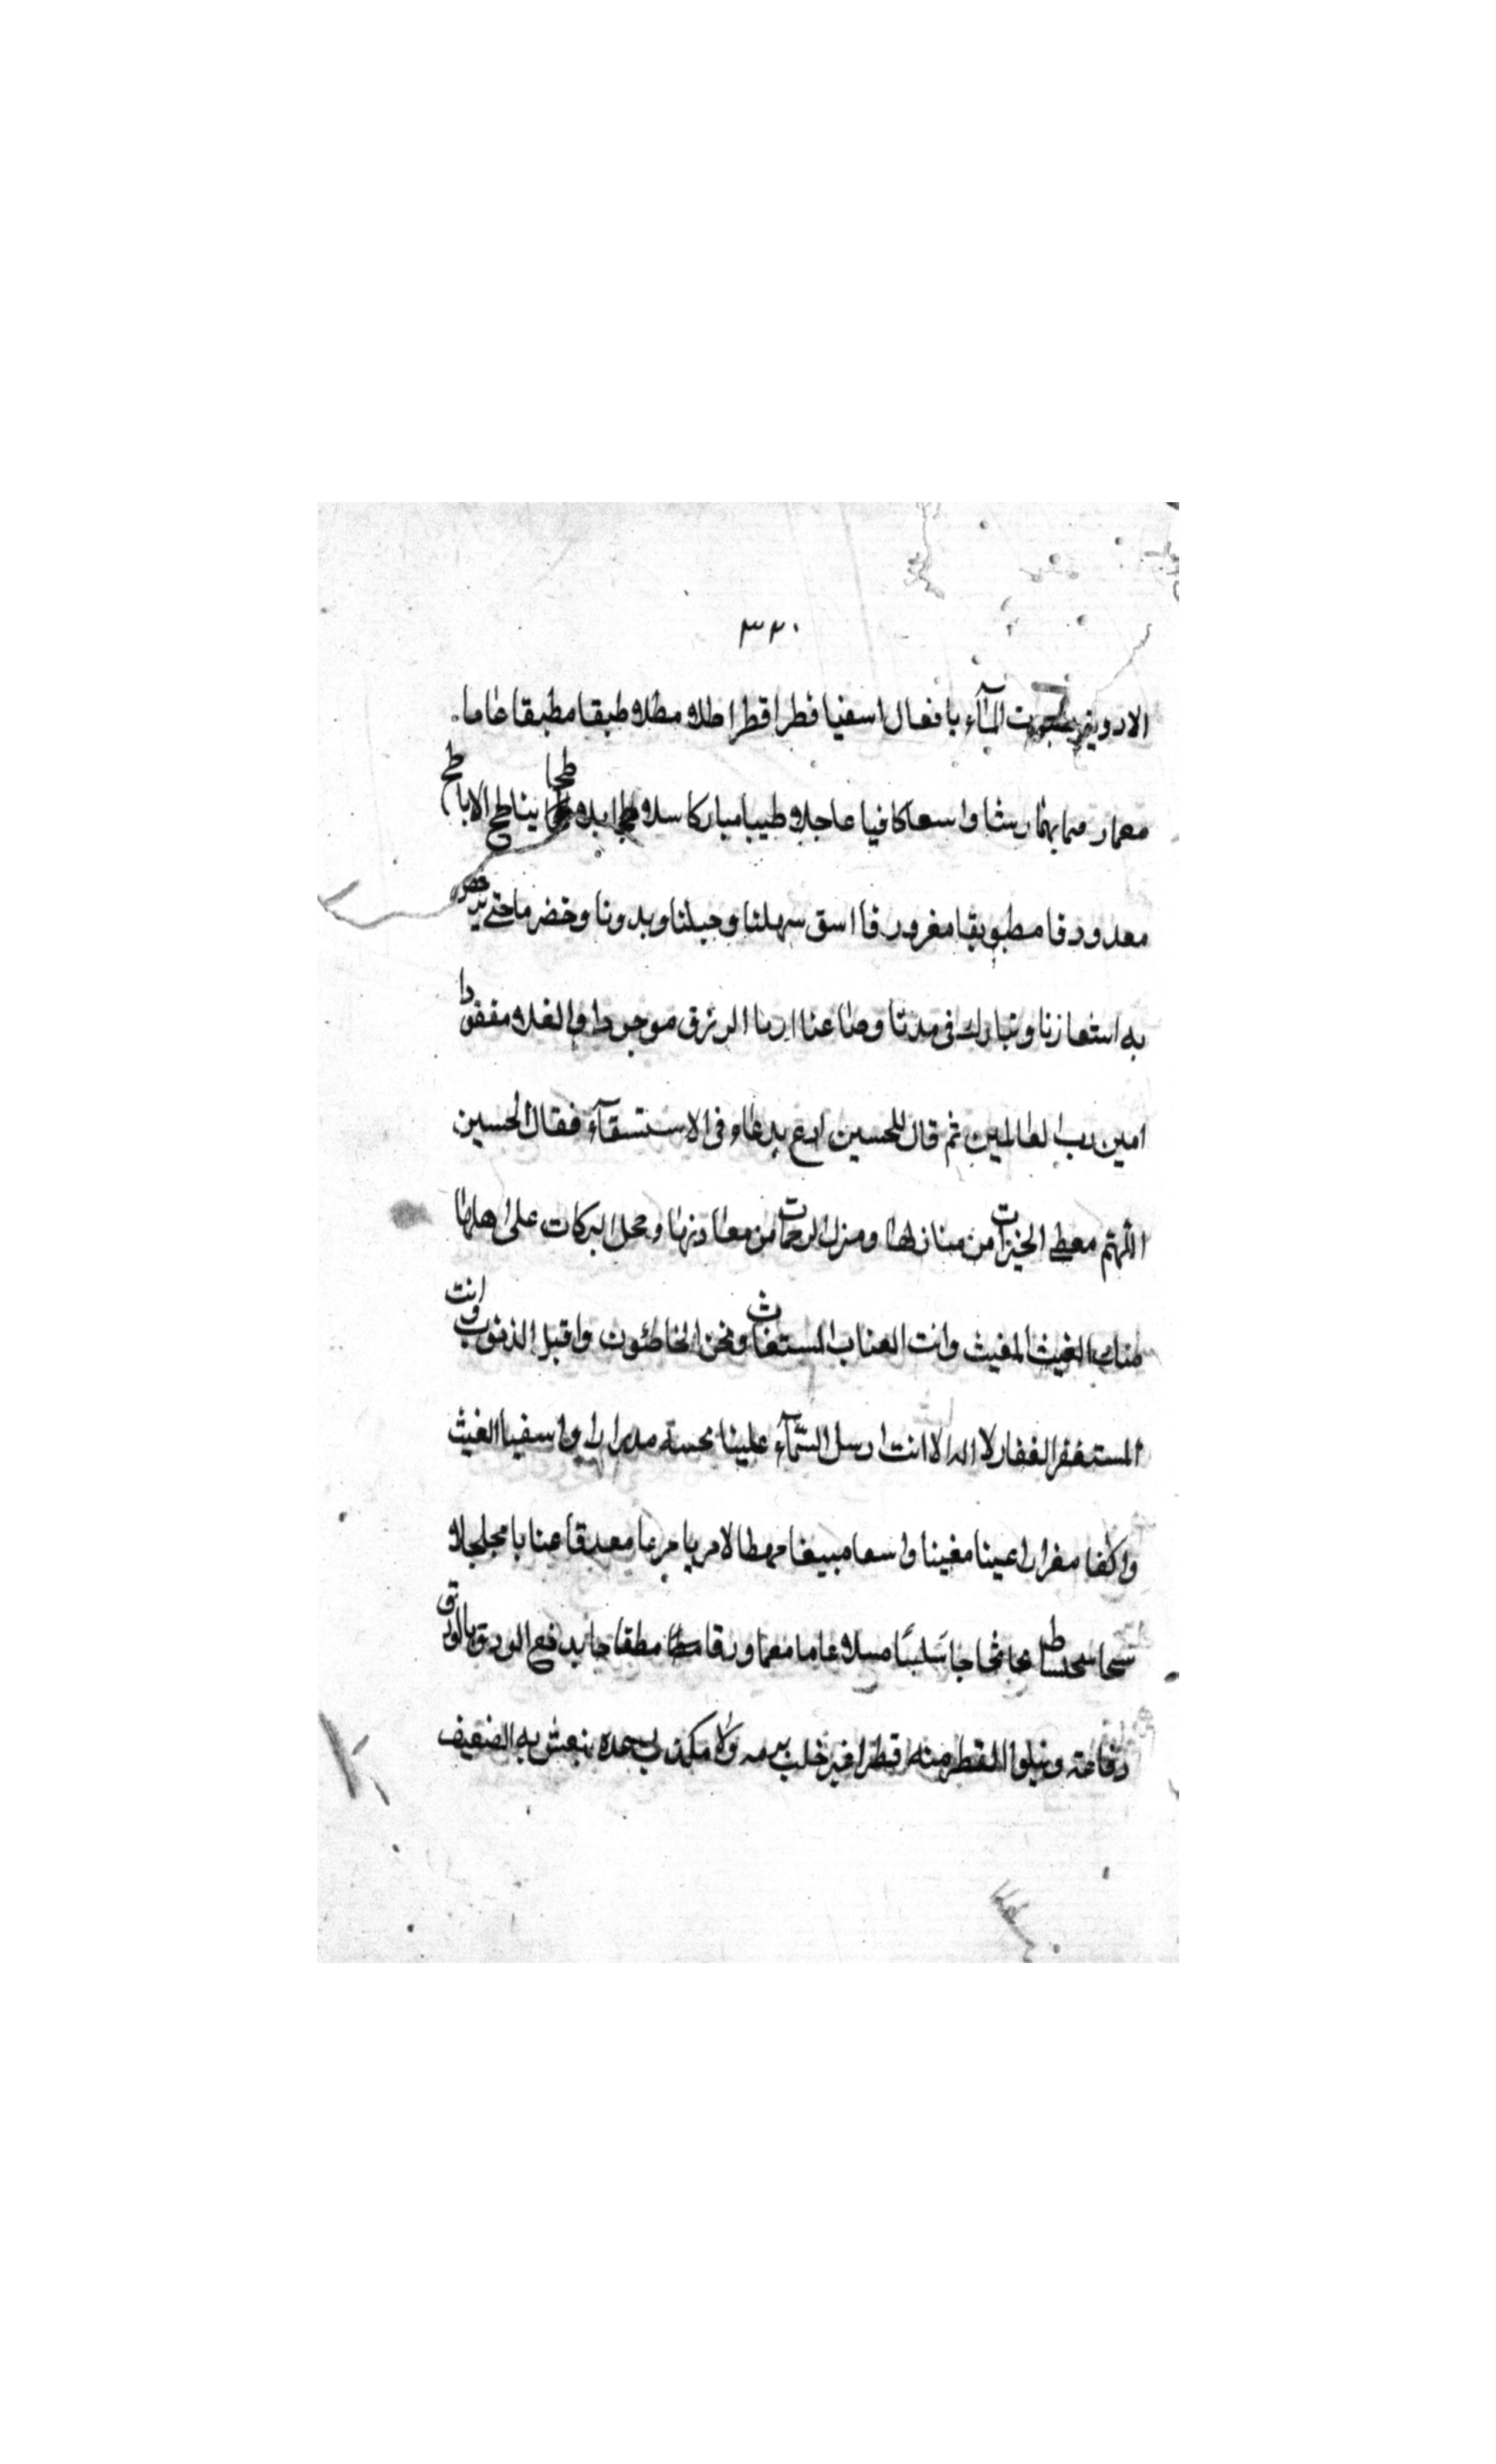 ٣٢٠
الاردوينر بجبوت المآء يا فعال اسفيا قطرا قطرا طلا مطلا طبقا مطبقا عاما
معمار هما بهمار شا واسعا كافيا عاجلا طيبا مباركا سلا بلاطحا يناطح الاباطح
معدودقا مطبوبقا مغرورقا اسق سهلنا وجبلنا وبدونا وخضرما حتى يرخص
به اسعارنا وتبارك فى مدنا وصاعنا ارنا الرزق موجودا والغلا مفقودا
امين رب العالمين ثم قال للحسين ادع بدعاء فى الاستسقآء فقال الحسين
اللهم معطى الخيرات من منازلها ومنزل الرحمات من معادنها ومحل البركات على اهلها
منك الغيث المغيث وانت العناب المستغاث ونحن الخاطئون واقبل الذنوب وانت
المستغفر الغفار لا اله الا انت ارسل السّمآء علينا محسه مدرارا واسفيا الغيث
واكفا مغرارا عينا مغينا واسعا مبيغا مهطالا مريا مرعا معدقا عنابا مجلجلا
سحا سحساطا بجاجا سَلبًا مسلا عاما معما ورقا مطقا جابدفع الودق بالودق
دفاعة ويتلوا القطر منه قطرا غير خلب برمه ولا مكذب عده ينعش به الضعيف